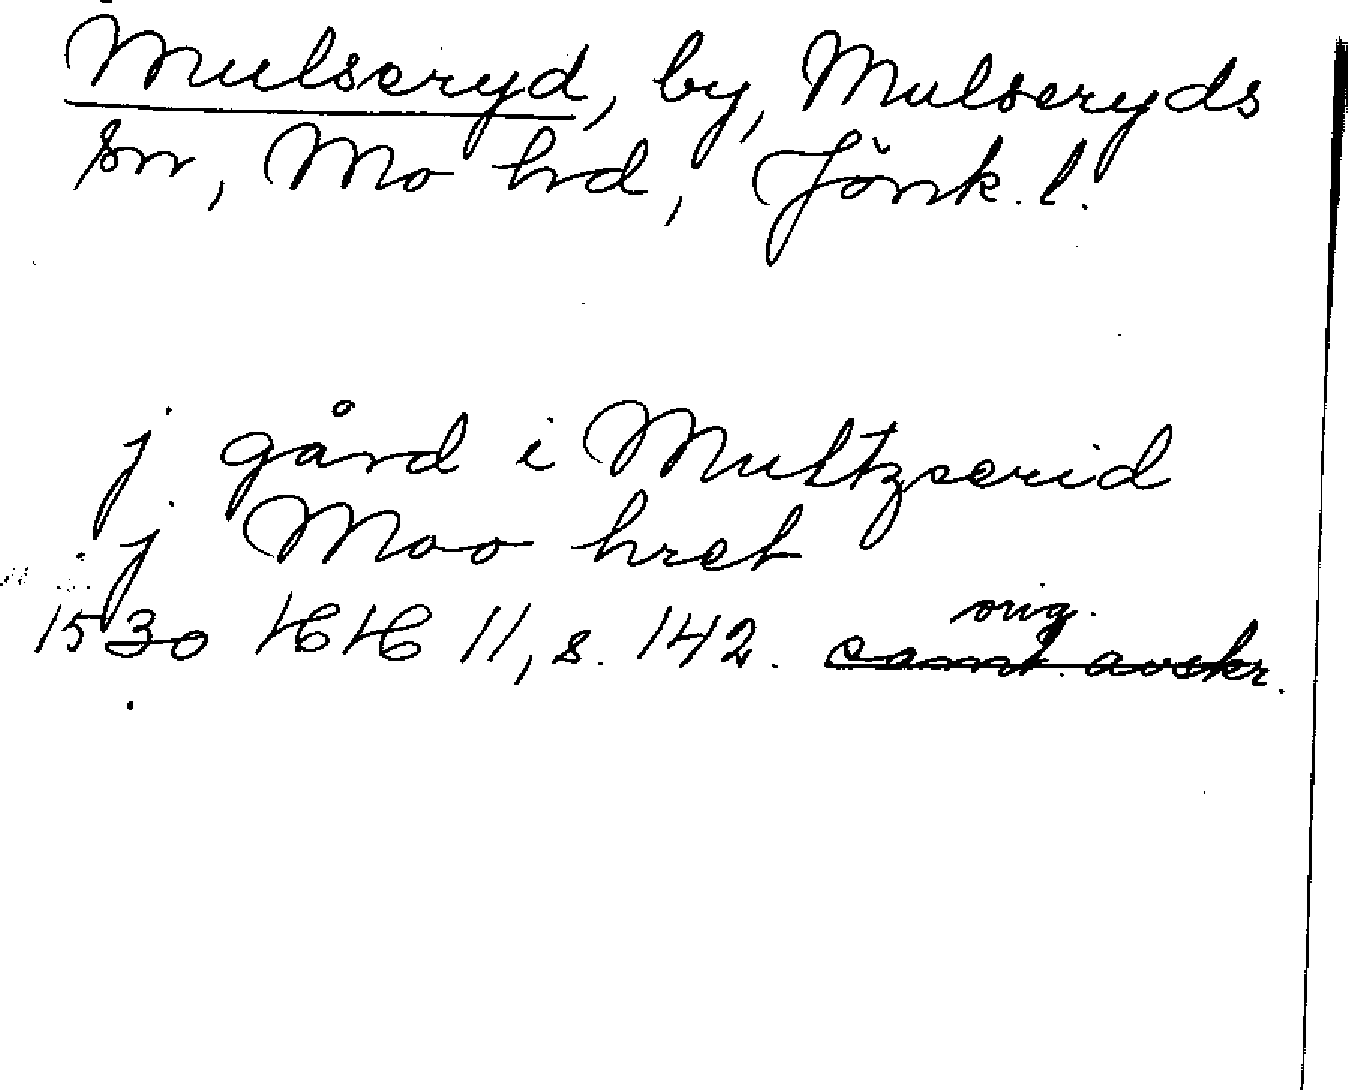 Mulseryd, by, Mulseryds
sn, Mo hd, Jönk. l.
j gård i Multzserid
j Moo hret
orig.
1530 HH 11, s. 142. samt. avskr.